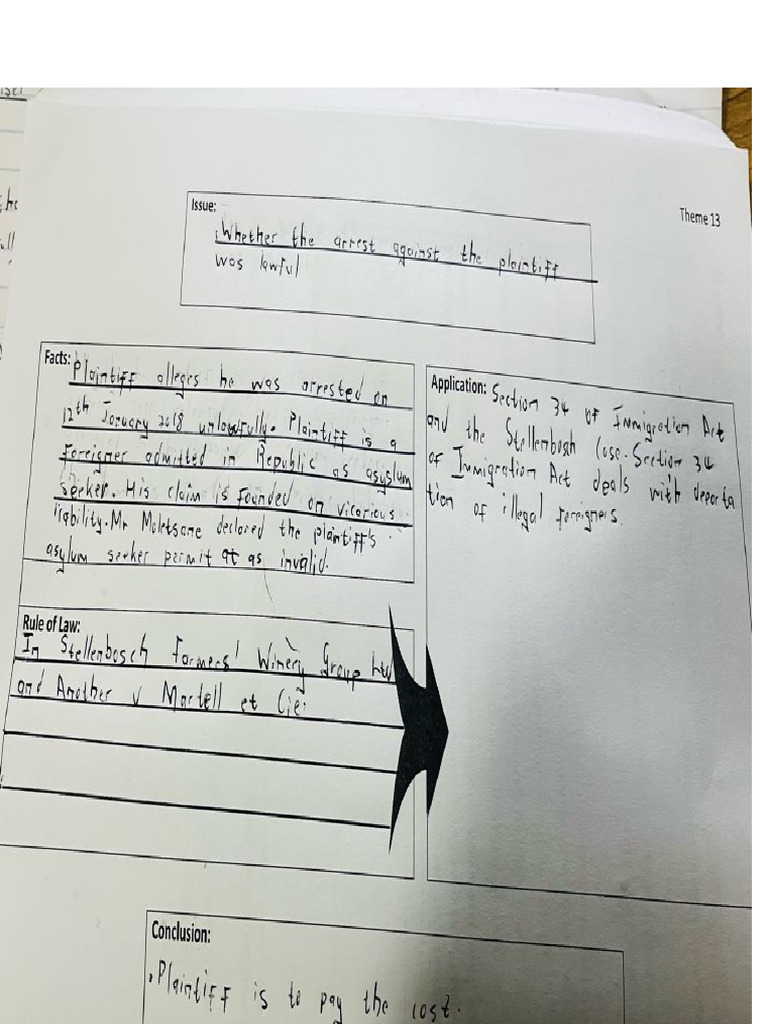 Theme 13
Issue:
Whether the arrest against the plaintiff
was lawful
Facts: Plaintiff alleges he was arrested on
12th January 2018 unlawfully. Plaintiff is a
Foreigner admitted in Republic as asylum
seeker. His claim is founded on vicarious
liability. Mr Moletsane declared the plaintiff's
asylum seeker permit as invalid.
Rule of Law:
In Stellenbosch Farmers' Winery Group Ltd
and Another v Martell et Cie:
Application: Section 34 of Immigration Act
and the Stellenbosh Case. Section 34
of Immigration Act deals with deporta
tion of illegal foreigners.
Conclusion:
Plaintiff is to pay the cost.